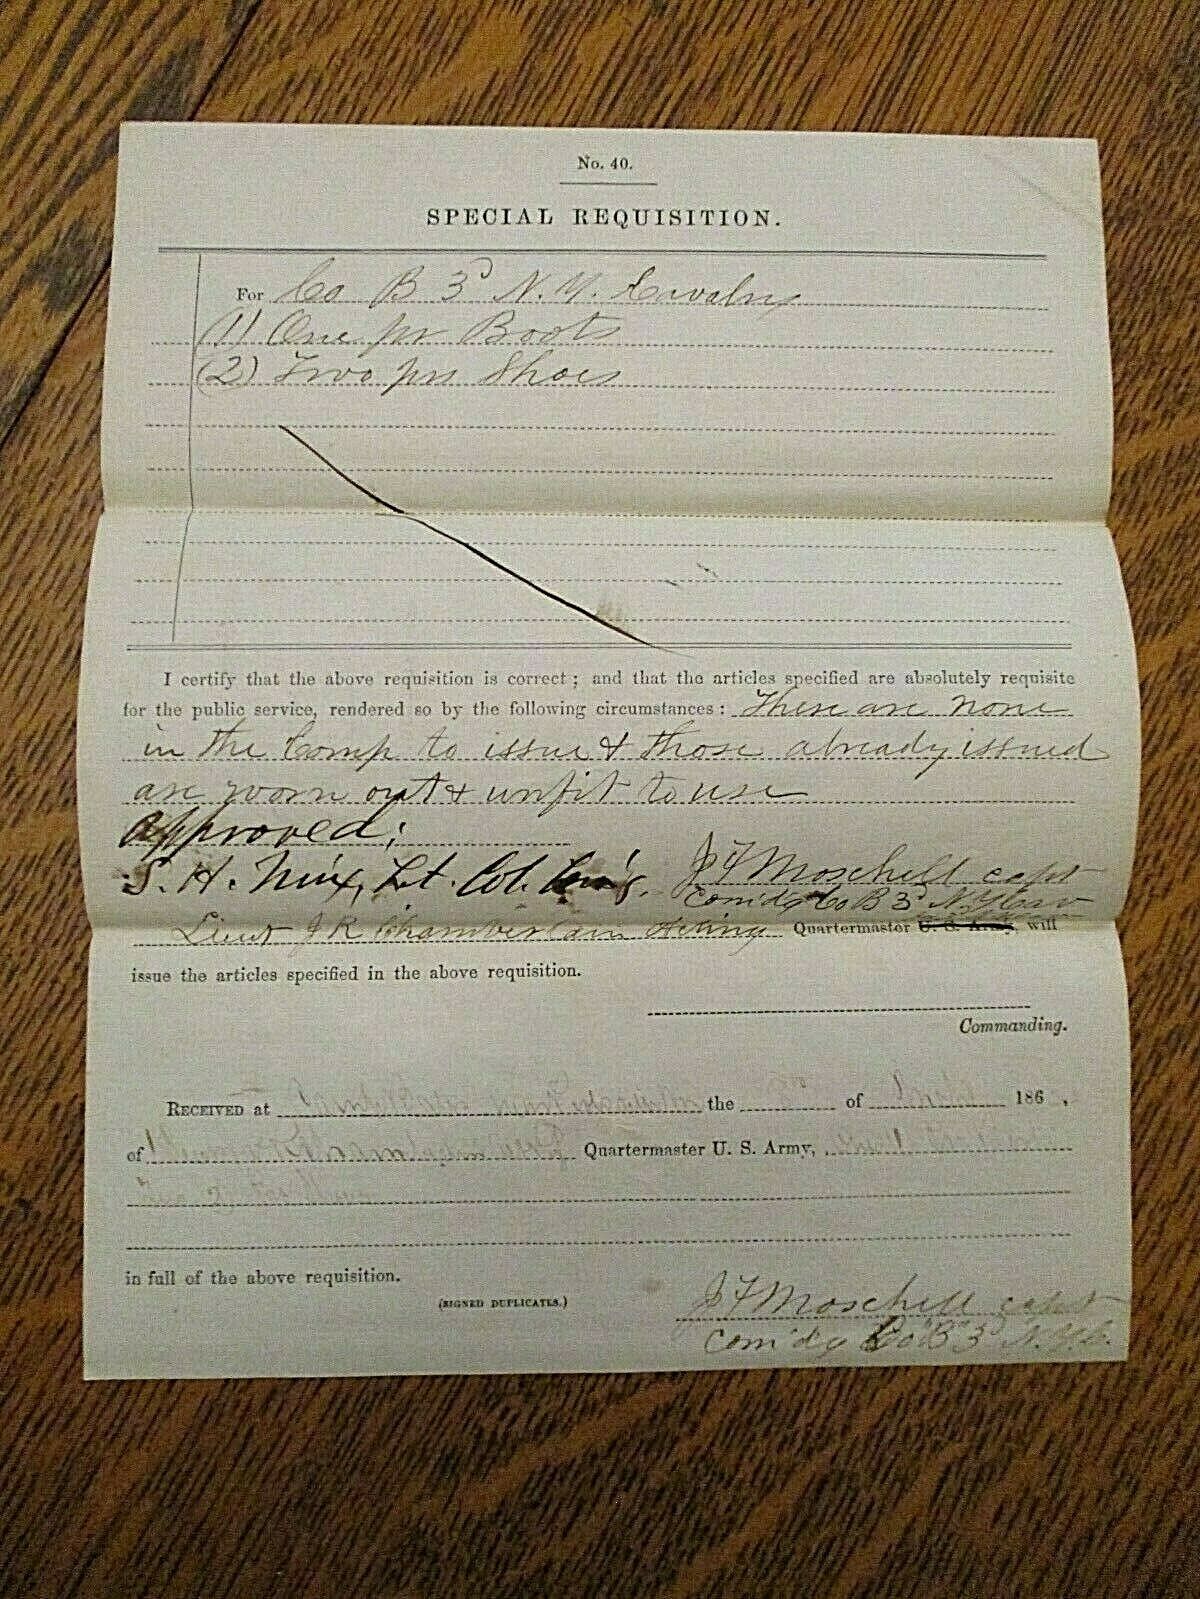 No. 40.
SPECIAL REQUISITION.
For Co B 3d N.Y. Cavalry
(1) One pr Boots
(2) Two prs Shoes
I certify that the above requisition is correct; and that the articles specified are absolutely requisite
for the public service, rendered so by the following circumstances: There are none
in the Comp to issue & those already issued
are worn out & unfit to use
Approved;
S. H. Mix, Lt. Col. Com'g.
J F Moschell capt
Com'dg Co B 3d N.Y Cav
Lieut J R Chamberlain Acting Quartermaster U. S. Army, will
issue the articles specified in the above requisition.
Commanding.
RECEIVED at the of 186 ,
of Quartermaster U. S. Army,
in full of the above requisition.
(SIGNED DUPLICATES.)
J F Moschell capt
Com'dg Co "B" 3d N.Y.C.